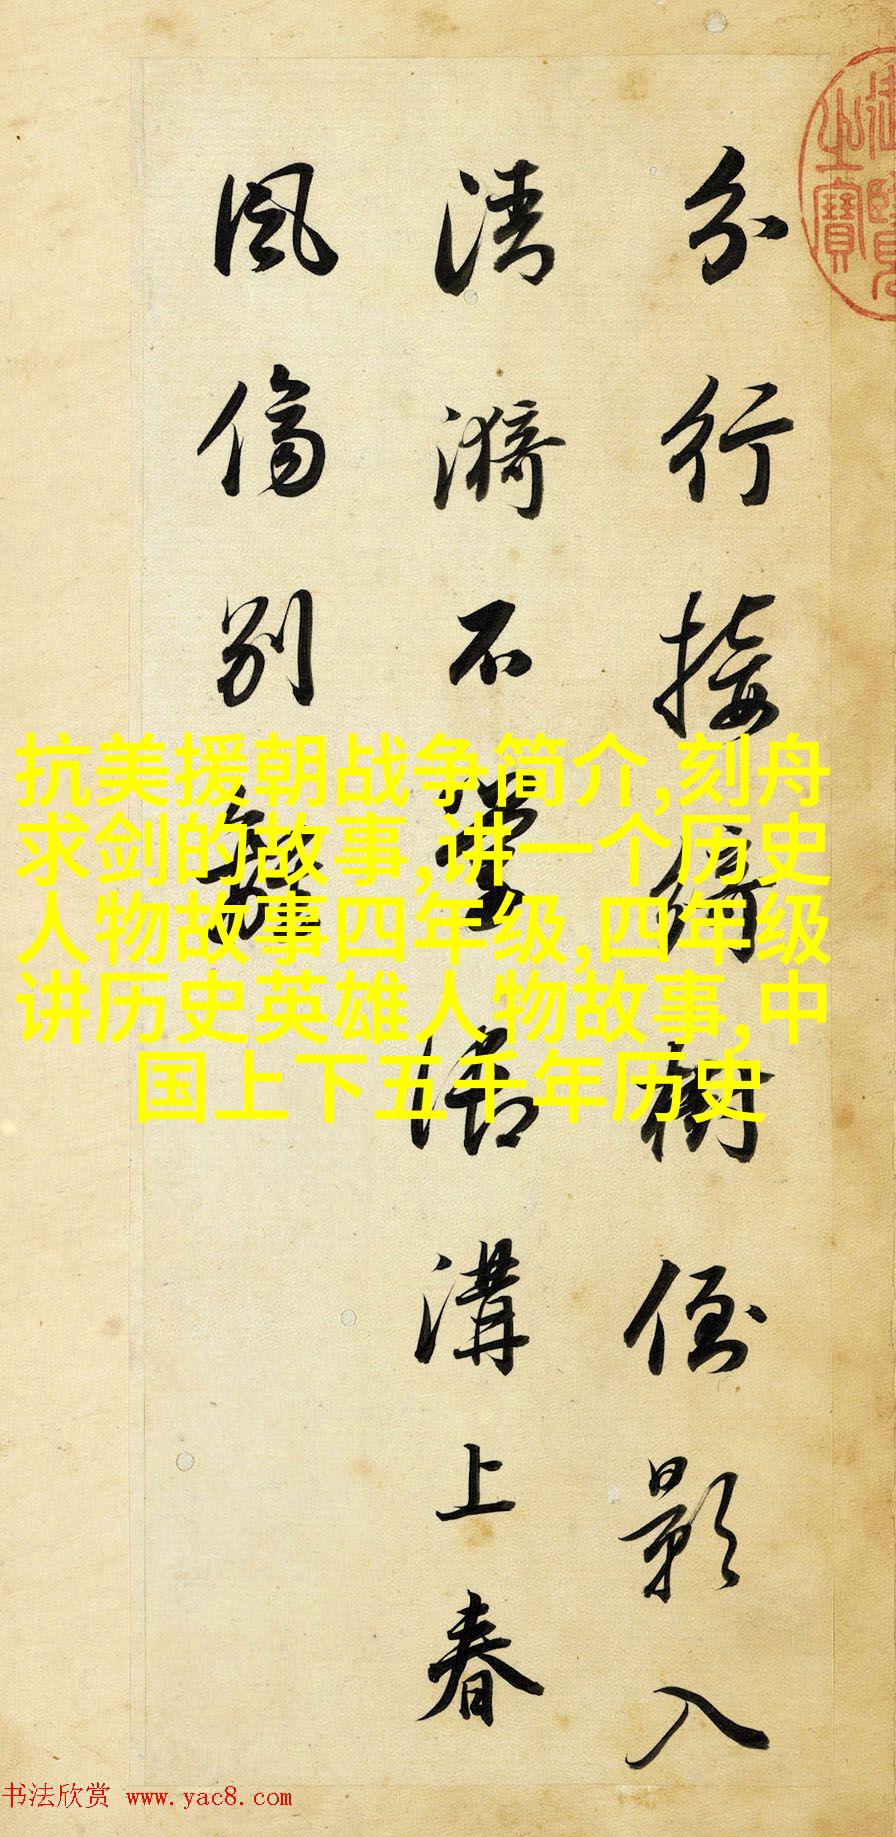 分行接綺樹倒影入
清漪不學御溝上春
風傷別離
御覽
之寶
抗美援朝战争简介,刻舟
求剑的故事,讲一个历史
人物故事四年级,四年级
讲历史英雄人物故事,中
国上下五千年历史
书法欣赏 www.yac8.com